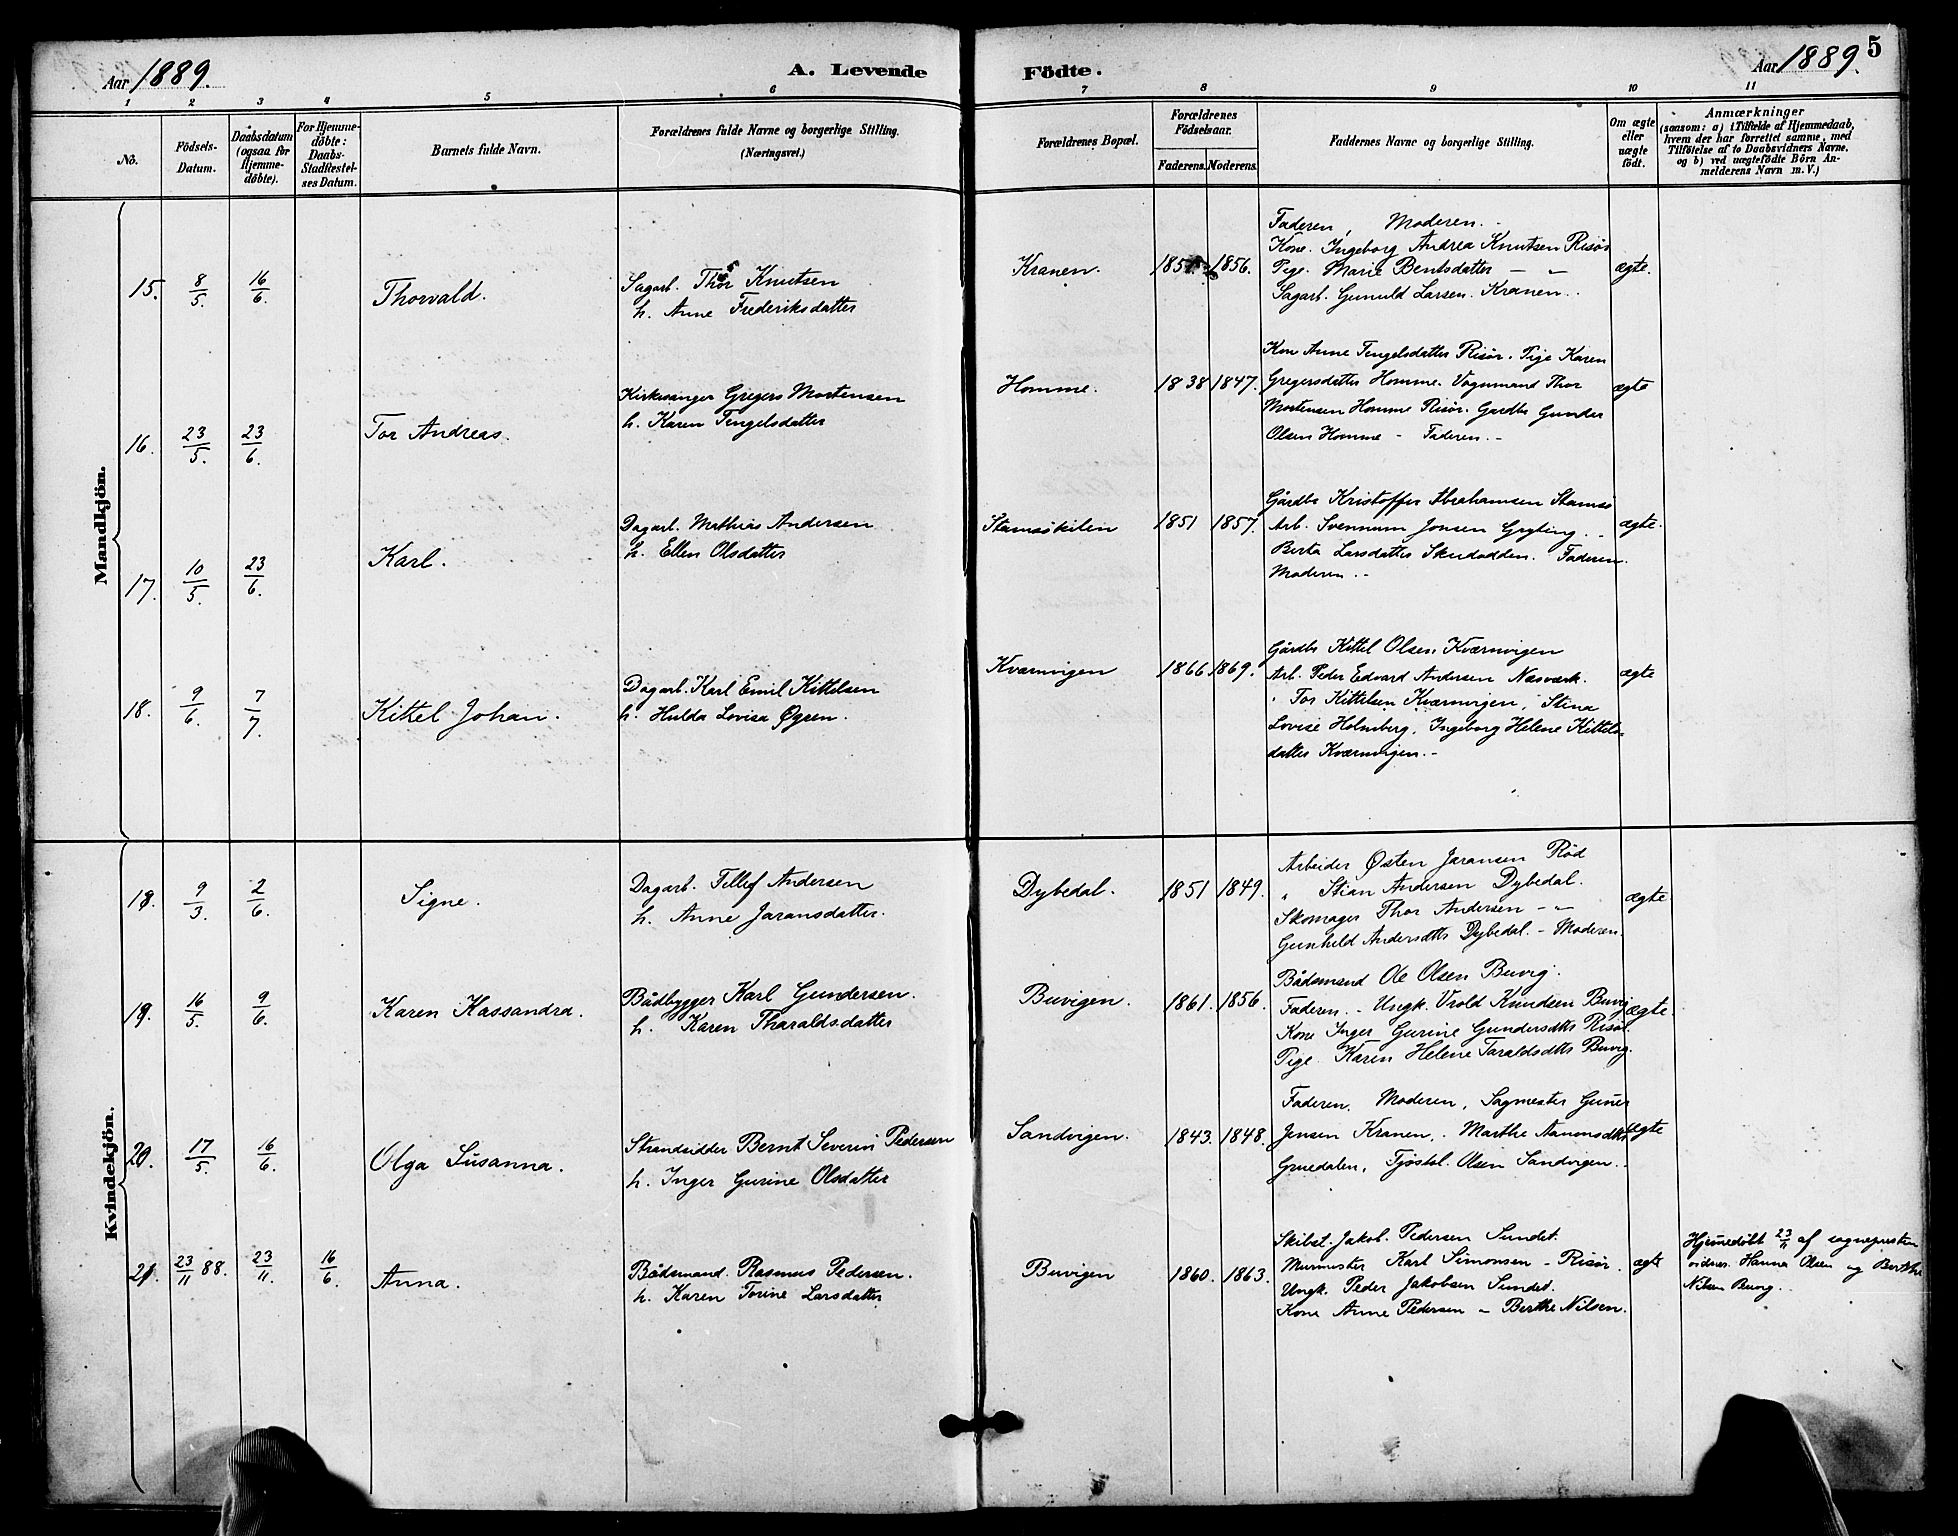 Aar 1889.
A. Levende
Födte.
Aar 1889.
5
1 2 3 4 5 6 7 8 9 10 11
No.
Födsels-
Datum.
Daabsdatum
(ogsaa for
Hjemme-
döbte).
For Hjemme-
döbte:
Daabs-
Stadfæstel-
ses Datum.
Barnets fulde Navn.
Forældrenes fulde Navne og borgerlige Stilling.
(Næringsvei.)
Forældrenes Bopæl.
Forældrenes
Födselsaar.
Faderens. Moderens.
Faddernes Navne og borgerlige Stilling.
Om ægte
eller
uægte
født.
Anmærkninger
(saasom: a) i Tilfælde af Hjemmedaab,
hvem der har forrettet samme, med
Tilföielse af to Daabsvidners Navne.
og b) ved uægtefödte Börn An-
melderens Navn m. V.)
Mandkjön.
15. 8/5. 16/6. Thorvald.
Sagarb. Thor Knutsen
h. Anne Frederiksdatter
Kranen. 1856. ægte.
Faderen, Moderen.
Kone. Ingeborg Andrea Knutsen Risør
Pige. Marie Bentsdatter — "
Sagarb. Gunuld Larsen. Kranen.
16. 23/5. 23/6. Tor Andreas.
Kirkesanger Gregers Mortensen
h. Karen Tengelsdatter
Homme. 1838 1847. ægte
Kon Anne Tengelsdatter Risør. Pige Karen
Gregersdatter Homme. Vognmand Thor
Mortensen Homme Risør. Gardbr Gunder
Olsen Homme – Faderen.-
17. 10/5. 23/6. Karl.
Dagarb. Mathias Andersen
h. Ellen Olsdatter
Stamsøkilen 1851 1857. ægte.
Gårdbr Kristoffer Abrahamsen Stamsø
Arb. Svennum Jonsen
Berta Larsdatter Faderen.
Moderen.-
18. 9/6. 7/7. Kittel Johan.
Dagarb. Karl Emil Kittelsen
h. Hulda Lovisa Øgren.
Kværnvigen 1866 1869. ægte
Gårdbr Kittel Olsen Kværnvigen
Arb. Peder Edvard Andersen Næsværk.
" Tor Kittelsen Kværnvigen, Stina
Lovise Holmberg, Ingeborg Helene Kittels-
datter Kværnvigen.-
Kvindekjön.
18. 9/3. 2/6. Signe.
Dagarb. Tellef Andersen
h. Anne Jaransdatter.
Dybedal. 1851 1849. ægte.
Arbeider Østen Jaransen Rød
" Stian Andersen Dybedal.
Skomager Thor Andersen - "
Gunhild Andersdtr Dybedal. – Moderen.
19. 16/5. 9/6. Karen Kassandra.
Bådbygger Karl Gundersen.
h. Karen Tharaldsdatter
Buvigen. 1861. 1856. ægte.
Bådsmand Ole Olsen Buvig.
Faderen. – Ungk. Vrold Knudsen Buvig
Kone Inger Gurine Gundersdtr Risør.
Pige. Karen Helene Taraldsdtr Buvig.
20. 17/5. 16/6. Olga Susanna.
Strandsidder Bernt Severin Pedersen
h. Inger Gurine Olsdatter
Sandvigen. 1843. 1848. ægte
Faderen, Moderen, Sagmester
Jensen Kranen. Marthe Aanonsdtr
Gruedalen, Olsen Sandvigen.
21. 23/11 88. 23/11. 16/6. Anna.
Bådsmand. Rasmus Pedersen.
h. Karen Torine Larsdatter
Buvigen 1860. 1863. ægte
Skibst. Jakob. Pedersen Sundet.
Murmester Karl Simonsen – Risør.
Ungk. Peder Jakobsen Sundet.
Kone Anne Pedersen – Berthe Nilsen.
Hjemedøbt 23/11 af sognepresten
vidner. Hanna Olsen og Berthe
Nilsen Buvig.